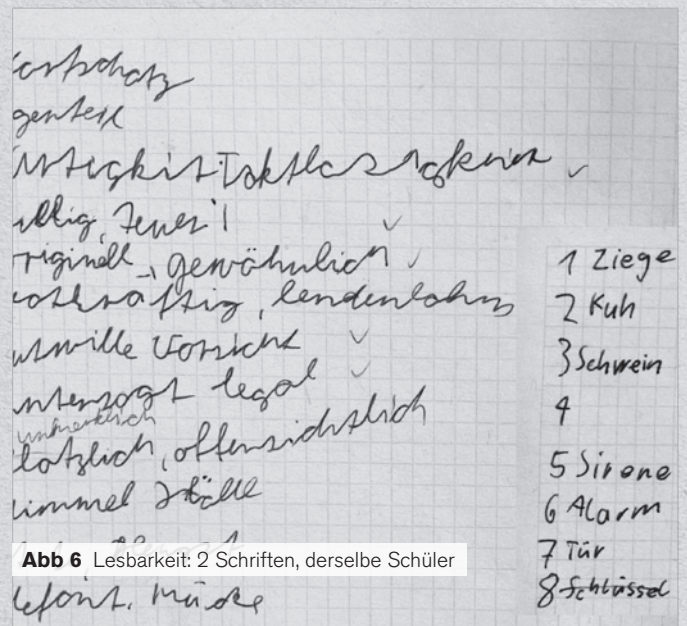 ortschatz
genteil
Taktlosigkeit
illig, teuer
riginell, gewöhnlich
otkräftig, lendenlahm
utwille Vorsicht
ntersagt legal
unmerklich
lötzlich, offensichtlich
immel Hölle
lefant, Mücke
1 Ziege
2 Kuh
3 Schwein
4
5 Sirene
6 Alarm
7 Tür
8 Schlüssel
Abb 6 Lesbarkeit: 2 Schriften, derselbe Schüler